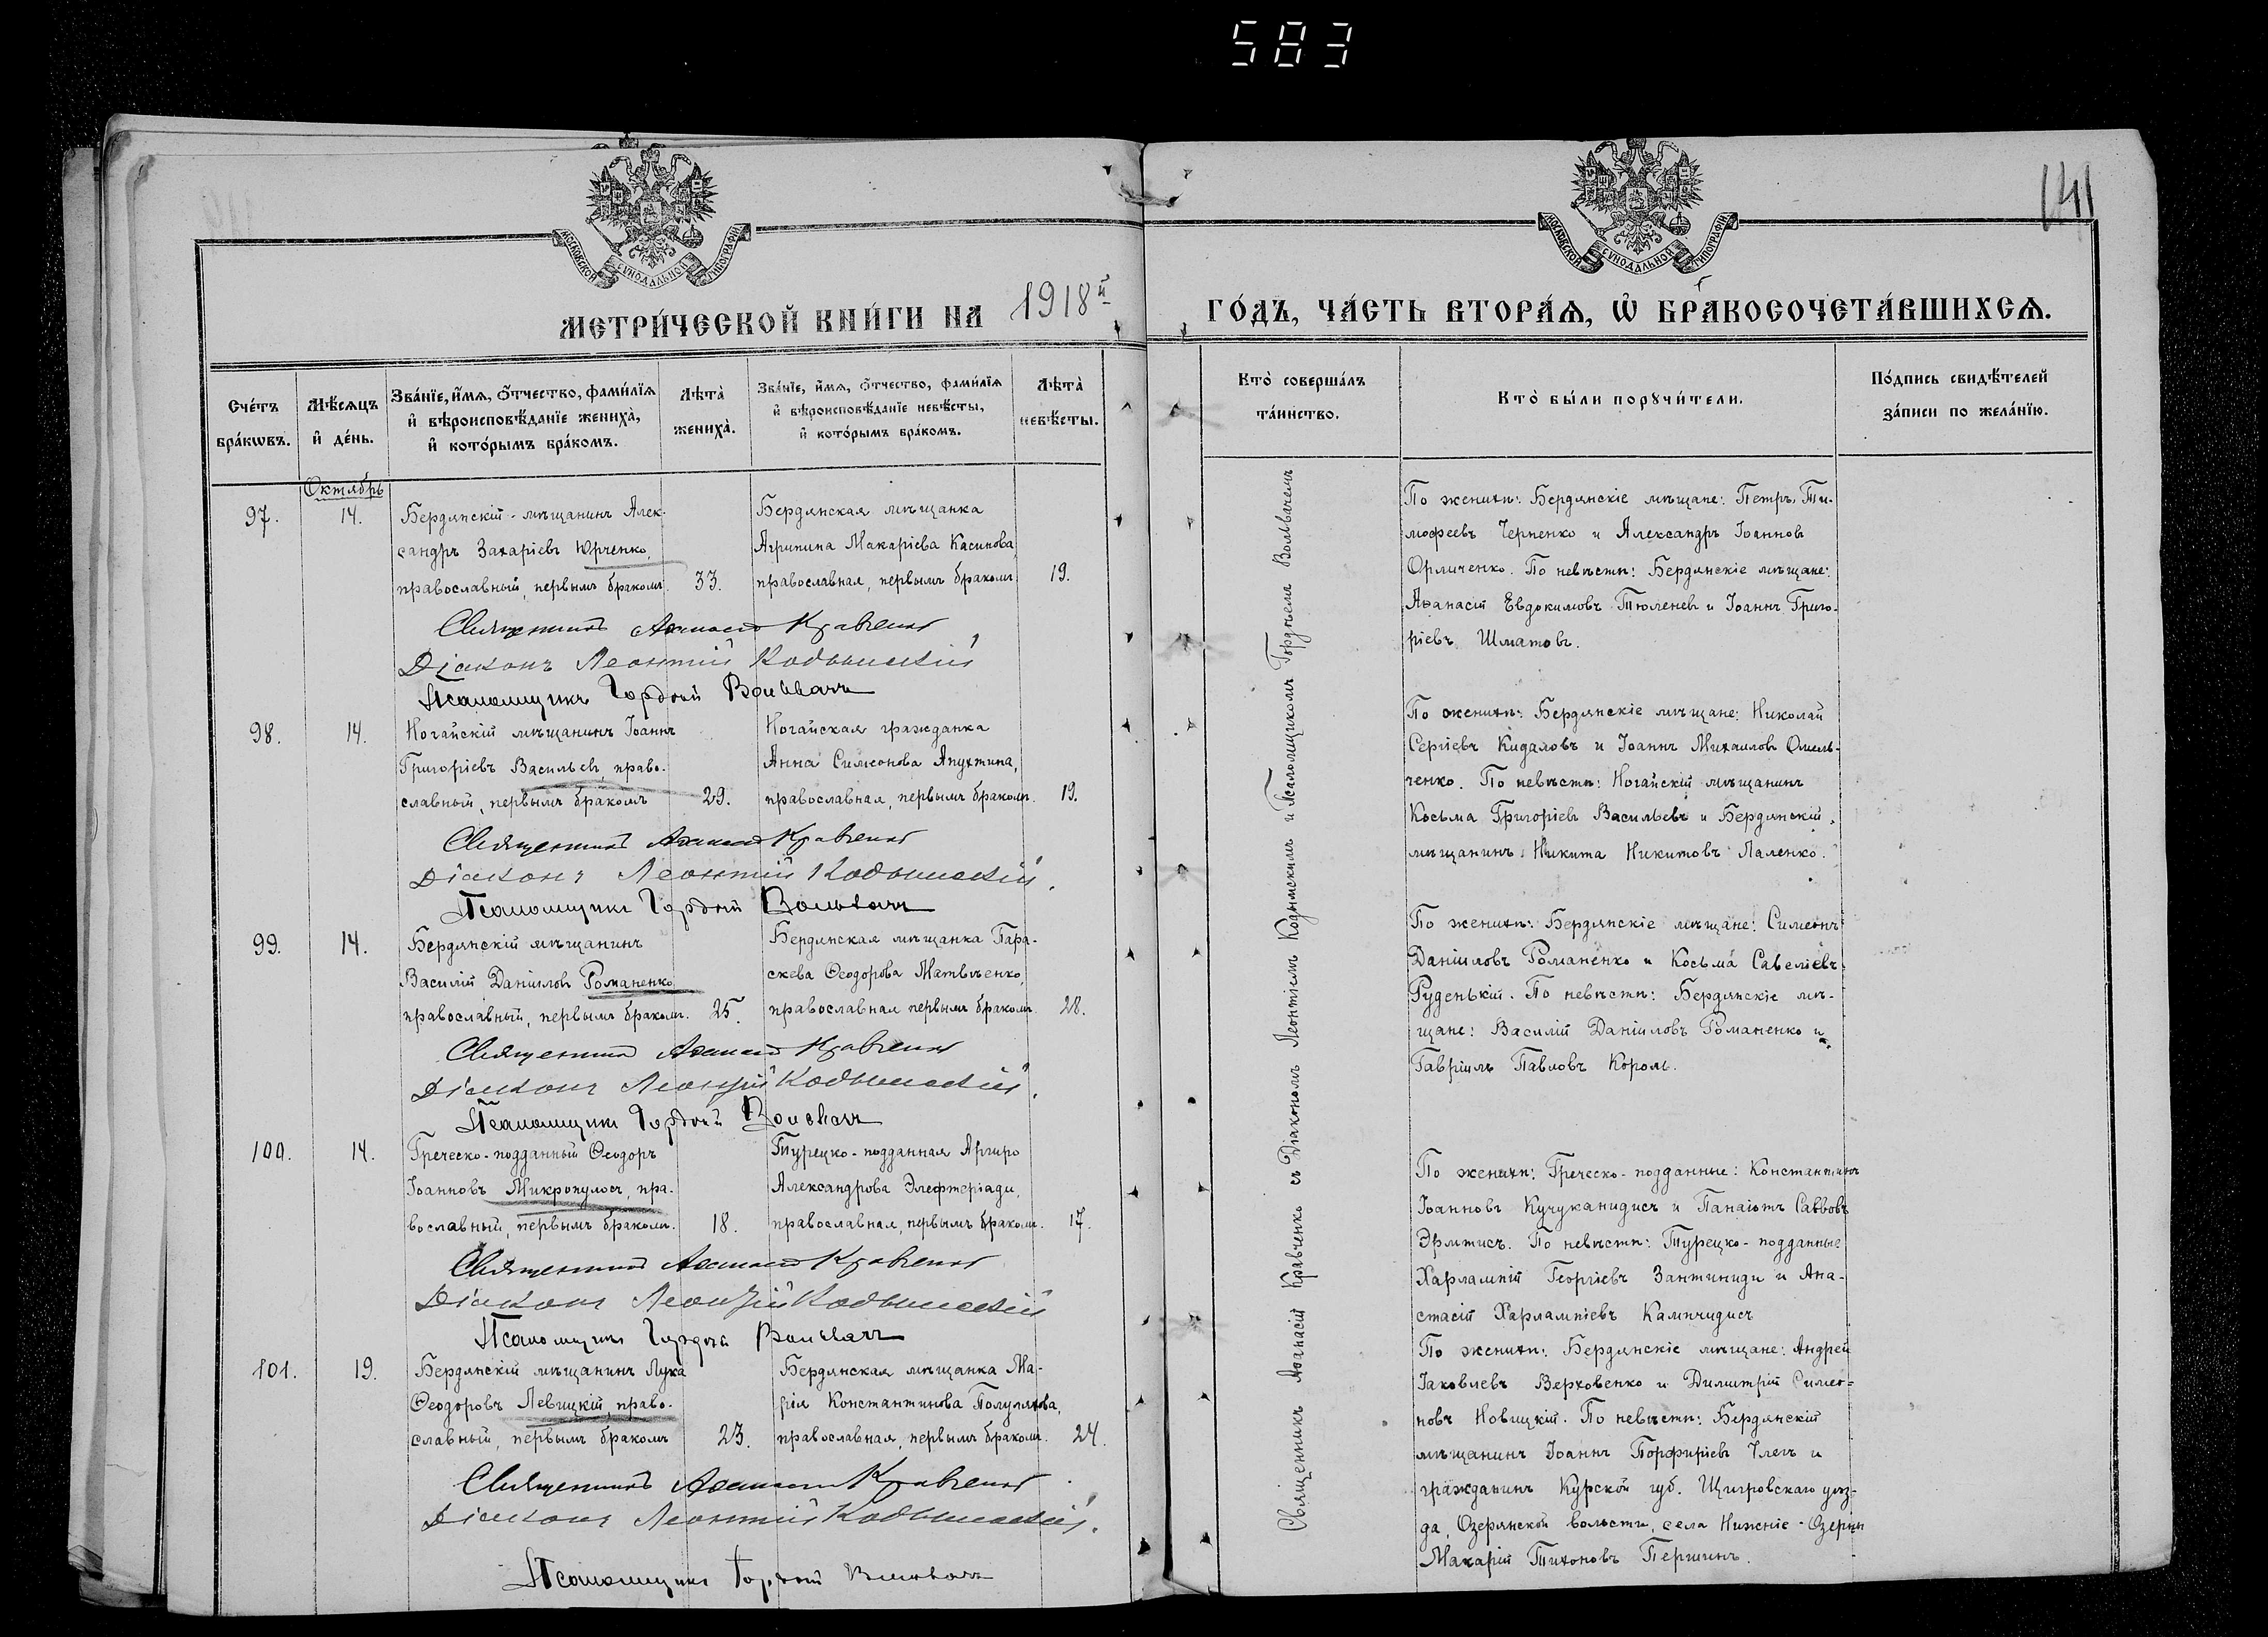 583
141
МОСКОВСКОЙ СѴНОДАЛЬНОЙ ТИПОГРАФІИ
МОСКОВСКОЙ СѴНОДАЛЬНОЙ ТИПОГРАФІИ
МЕТРИ́ЧЕСКОЙ КНИ́ГИ НА 1918й
ГО́ДЪ, ЧА́СТЬ ВТОРА́Ѧ, Ѽ БРАКОСОЧЕТА́ВШИХСѦ.
Сче́тъ бра́кѡвъ.
Мѣ́сѧцъ и҆ де́нь.
Зва́нїе, и҆́мѧ, ѻ҆́тчество, фами́лїѧ
и҆ вѣроисповѣ́данїе жениха̀,
и҆ кото́рымъ бра́комъ.
Лѣ́та̀ жениха̀.
Зва́нїе, и҆́мѧ, ѻ҆́тчество, фами́лїѧ
и҆ вѣроисповѣ́данїе невѣ́сты,
и҆ кото́рымъ бра́комъ.
Лѣ́та̀ невѣ́сты.
Кто̀ соверша́лъ
та́инство.
Кто̀ бы́ли порꙋчи́тели.
По́дпись свидѣ́телей
за́писи по жела́нїю.
Октябрь
97.
14.
Бердянскій мѣщанинъ Алек-
сандръ Захаріевъ Юрченко,
православный, первымъ бракомъ.
33.
Бердянская мѣщанка
Агрипина Макаріева Касинова,
православная, первымъ бракомъ.
19.
По женихѣ: Бердянскіе мѣщане: Петръ Ти-
мофеевъ Черненко и Александръ Іоанновъ
Орличенко. По невѣстѣ: Бердянскіе мѣщане:
Аѳанасій Евдокимовъ Тюленевъ и Іоаннъ Григо-
ріевъ Шматовъ.
Священникъ Аѳанасій Кравченко
Діаконъ Леонтій Кодымскій
Псаломщикъ Гордѣй Вольвачъ
98.
14.
Ногайскій мѣщанинъ Іоаннъ
Григоріевъ Васильевъ, право-
славный, первымъ бракомъ
29.
Ногайская гражданка
Анна Симеонова Апухтина,
православная, первымъ бракомъ.
19.
По женихѣ: Бердянскіе мѣщане: Николай
Сергіевъ Кидаловъ и Іоаннъ Михаиловъ Омель-
ченко. По невѣстѣ: Ногайскій мѣщанинъ
Косьма Григоріевъ Васильевъ и Бердянскій
мѣщанинъ Никита Никитовъ Паленко.
Священникъ Аѳанасій Кравченко
Діаконъ Леонтій Кодымскій.
Псаломщикъ Гордѣй Вольвачъ
99.
14.
Бердянскій мѣщанинъ
Василій Даніиловъ Романенко
православный, первымъ бракомъ.
25.
Бердянская мѣщанка Пара-
скева Ѳеодорова Матвѣенко,
православная первымъ бракомъ.
28.
По женихѣ: Бердянскіе мѣщане: Симеонъ
Даніиловъ Романенко и Косьма Савеліевъ
Руденькій. По невѣстѣ: Бердянскіе мѣ-
щане: Василій Даніиловъ Романенко и
Гавріилъ Павловъ Король.
Священникъ Аѳанасій Кравченко
Діаконъ Леонтій Кодымскій.
Псаломщикъ Гордѣй Вольвачъ
100.
14.
Греческо-подданный Ѳеодоръ
Іоанновъ Микропулосъ, пра-
вославный, первымъ бракомъ.
18.
Турецко-подданная Аргиро
Александрова Элефтеріади,
православная, первымъ бракомъ.
17.
По женихѣ: Греческо-подданные: Константинъ
Іоанновъ Кучуканидисъ и Панаіотъ Савовъ
Эрмтисъ. По невѣстѣ: Турецко-подданные
Харлампій Георгіевъ Зантиниди и Ана-
стасій Харлампіевъ Кампчидисъ
Священникъ Аѳанасій Кравченко
Діаконъ Леонтій Кодымскій
Псаломщикъ Гордѣй Вольвачъ
101.
19.
Бердянскій мѣщанинъ Лука
Ѳеодоровъ Левицкій, право-
славный, первымъ бракомъ
23.
Бердянская мѣщанка Ма-
рія Константинова Полуляхова,
православная, первымъ бракомъ.
24.
По женихѣ: Бердянскіе мѣщане: Андрей
Іаковлевъ Верховенко и Димитрій Симео-
новъ Новицкій. По невѣстѣ: Бердянскій
мѣщанинъ Іоаннъ Порфиріевъ и
гражданинъ Курской губ. Щигровскаго уѣз-
да, Озерянской волости, села Нижніе-Озерны
Макарій Тихоновъ Першинъ.
Священникъ Аѳанасій Кравченко
Діаконъ Леонтій Кодымскій.
Псаломщикъ Гордѣй Вольвачъ
Священникъ Аѳанасій Кравченко съ Діакономъ Леонтіемъ Кодымскимъ и Псаломщикомъ Гордѣемъ Вольвачемъ